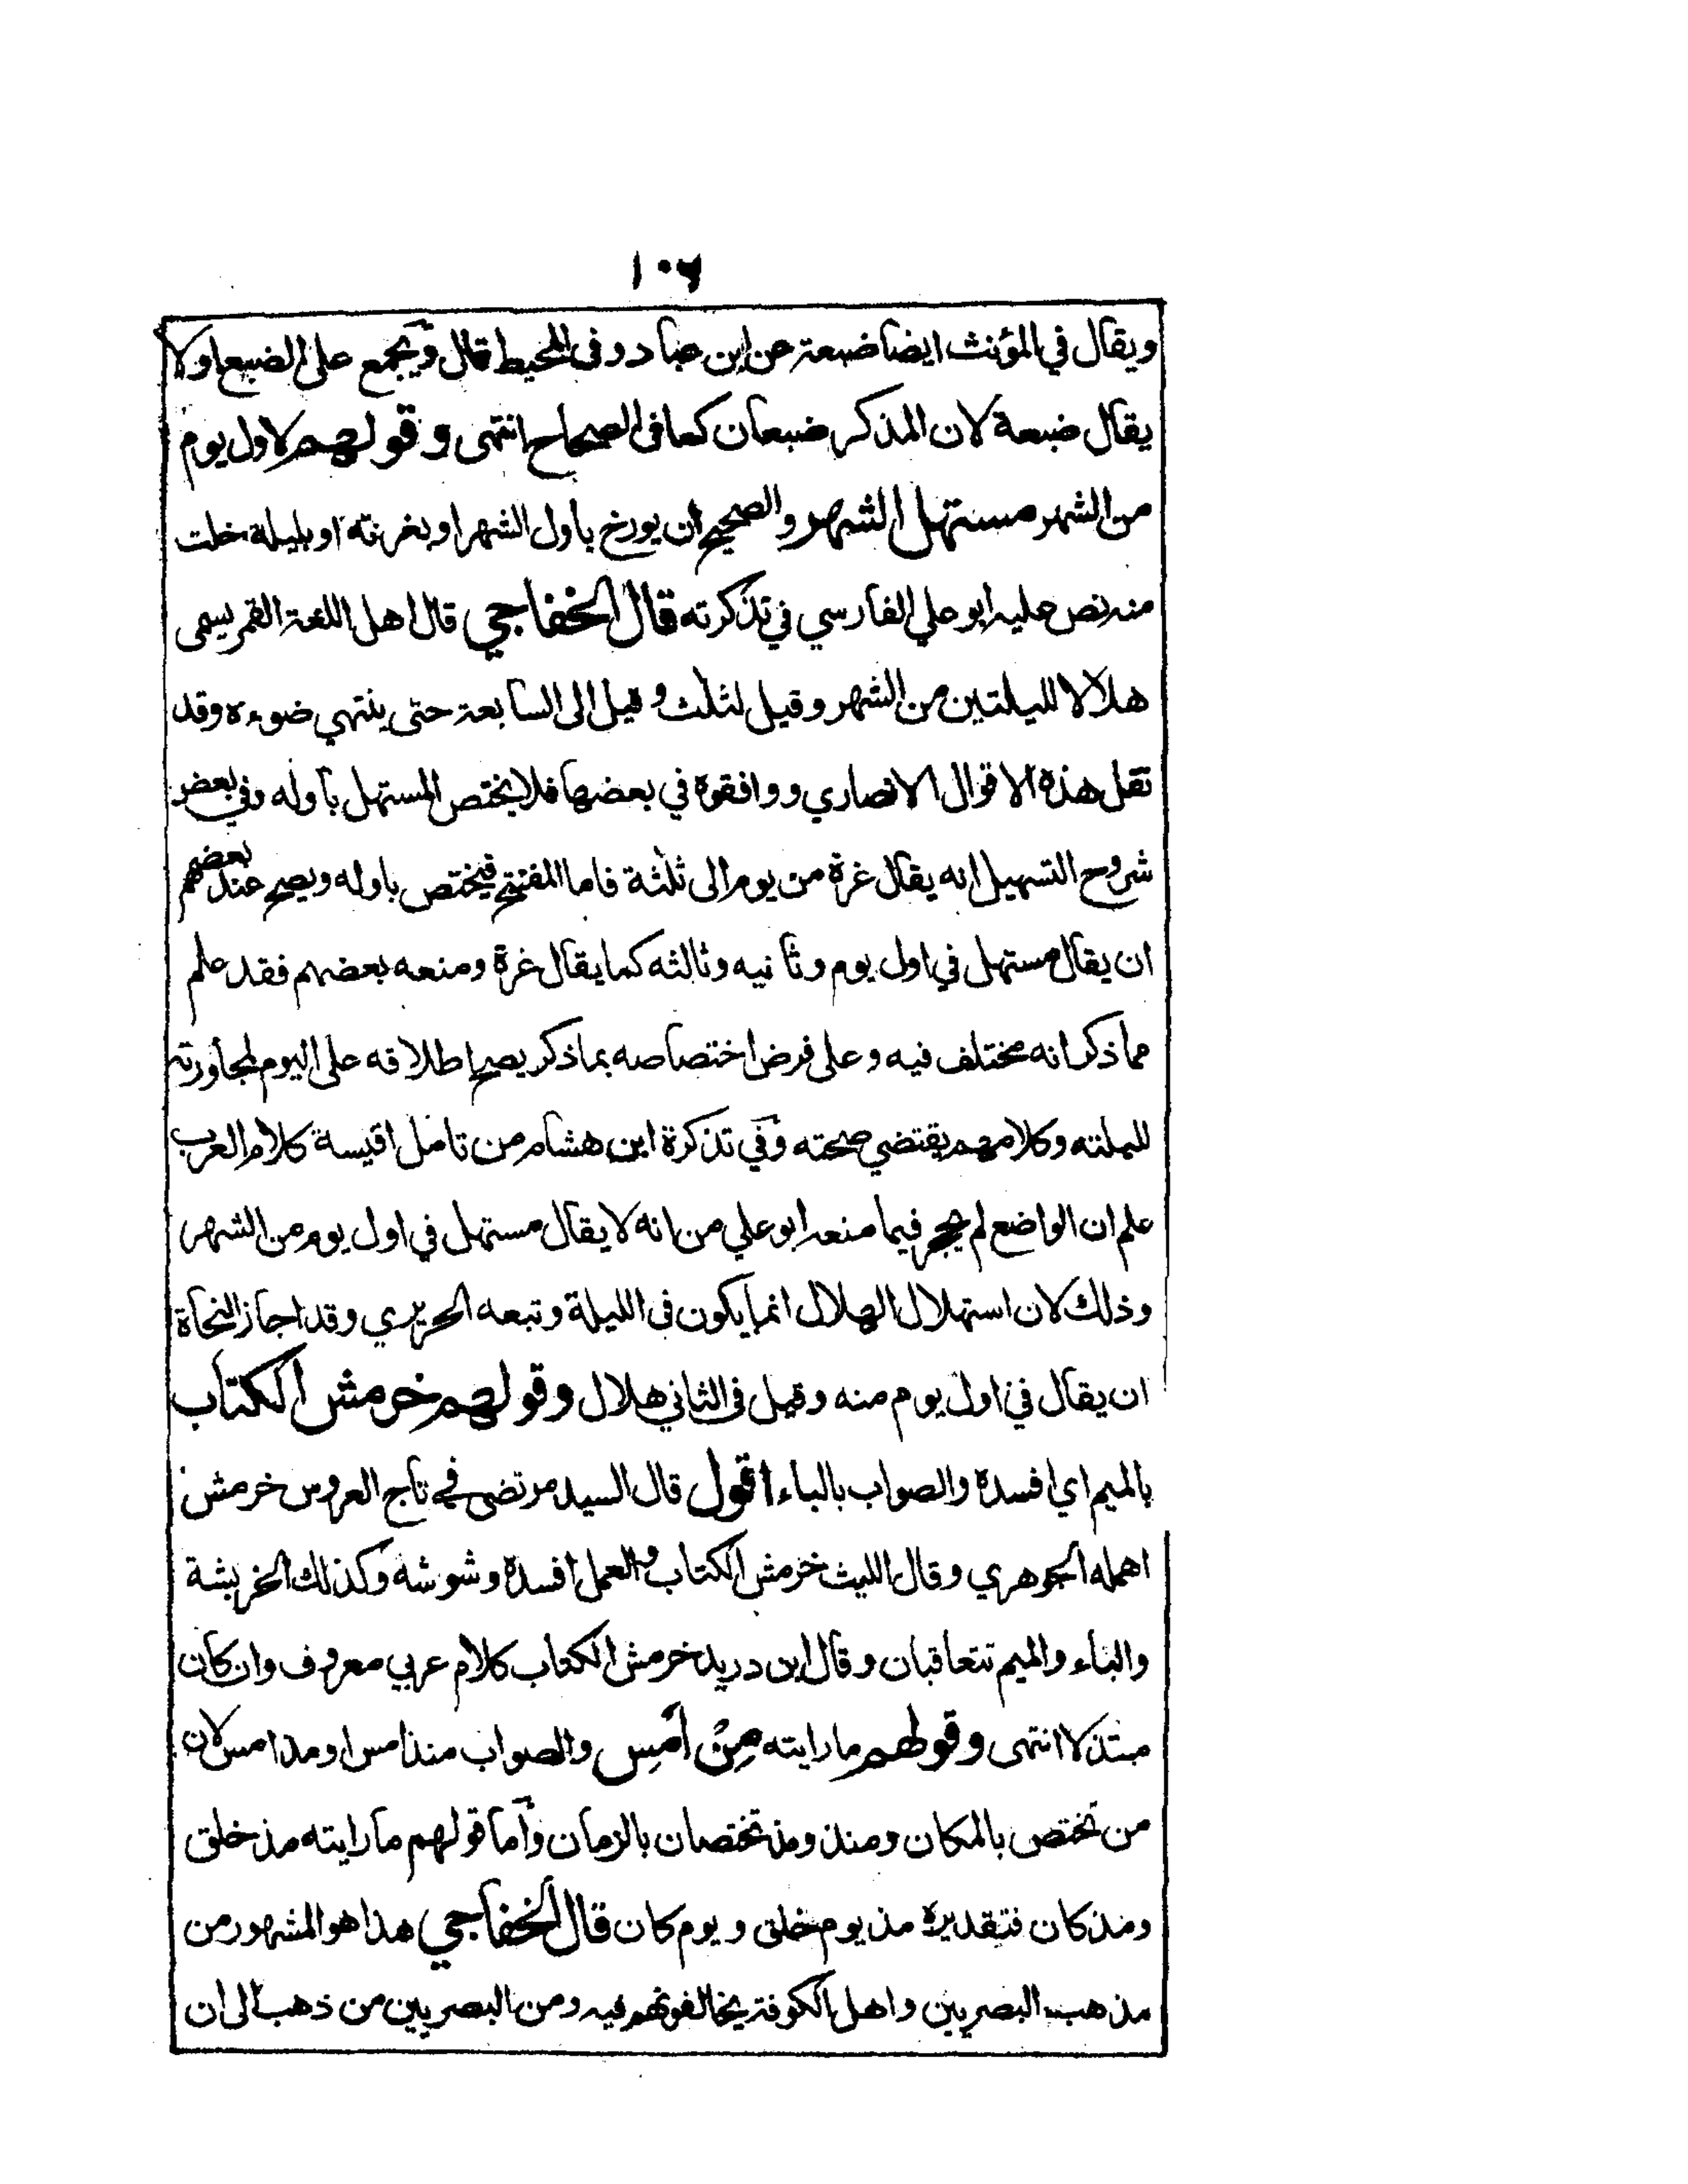 ١٠٦
ويقال في المؤنث ايضا ضبعة عن ابن عباد وفى المحيط قال ويجمع على الضبع اولا
يقال ضبعة لان المذكر ضبعان كما فى الصحاح انتهى وقولهم لاول يوم
من الشهر مستهل الشهر والصحيح ان يورخ باول الشهر او بغرته او بليلة خلت
منه نص عليه ابو علي الفارسي في تذكرته قال الخفاجي قال اهل اللغة القمر يسمى
هلالا لليلتين من الشهر وقيل لثلث وقيل الى السابعة حتى ينتهي ضوءه وقد
نقل هذه الاقوال الانصاري ووافقوه في بعضها فلا يختص المستهل باوله وفي بعض
شروح التسهيل انه يقال غرة من يوم الى ثلثة فاما المفتتح فيختص باوله ويصح عند بعضهم
ان يقال مستهل في اول يوم وثانيه وثالثه كما يقال غرة ومنعه بعضهم فقد علم
مما ذكر انه مختلف فيه وعلى فرض اختصاصه بما ذكر يصح اطلاقه على اليوم لمجاورته
لليلته وكلامهم يقتضي صحته وفي تذكرة ابن هشام من تامل اقيسة كلام العرب
علم ان الواضع لم يحجر فيما منعه ابو علي من انه لا يقال مستهل في اول يوم من الشهر
وذلك لان استهلال الهلال انما يكون فى الليلة وتبعه الحريري وقد اجاز النحاة
ان يقال في اول يوم منه وقيل فى الثاني هلال وقولهم خرمش الكتاب
بالميم اي افسده والصواب بالباء اقول قال السيد مرتضى في تاج العروس خرمش
اهمله الجوهري وقال الليث خرمش الكتاب والعمل افسده وشوشه وكذلك الخربشة
والباء والميم تتعاقبان وقال ابن دريد خرمش الكتاب كلام عربي معروف وان كان
مبتذلا انتهى وقولهم ما رايته مِنْ اَمْسِ والصواب منذ امس او مذ امس لان
من تختص بالمكان ومنذ ومذ تختصان بالزمان واما قولهم ما رايته مذ خلق
ومذ كان فتقديره مذ يوم خلق ويوم كان قال الخفاجي هذا هو المشهور من
مذهب البصريين واهل الكوفة يخالفونهم فيه ومن البصريين من ذهب الى ان